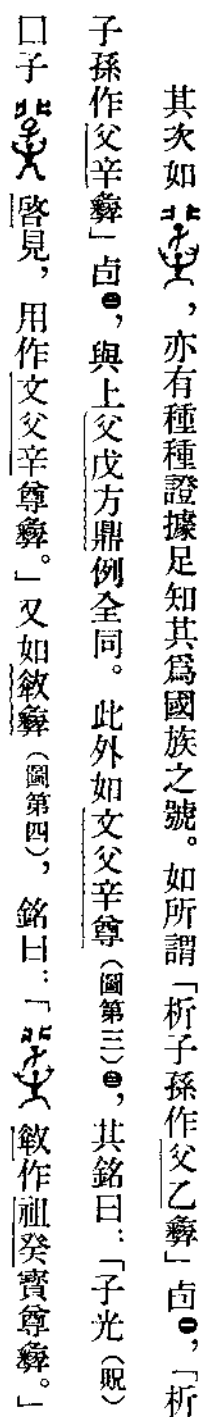 其次如,亦有種種證據足知其爲國族之號。如所謂「析子孫作父乙彝」卣㊀,「析
子孫作父辛彝」卣㊁,與上父戊方鼎例全同。此外如文父辛尊(圖第三)㊂,其銘曰:「子光(貺)
囗子晵見,用作文父辛尊彝。」又如敏彝(圖第四),銘曰:「敏作祖癸寶尊彝。」